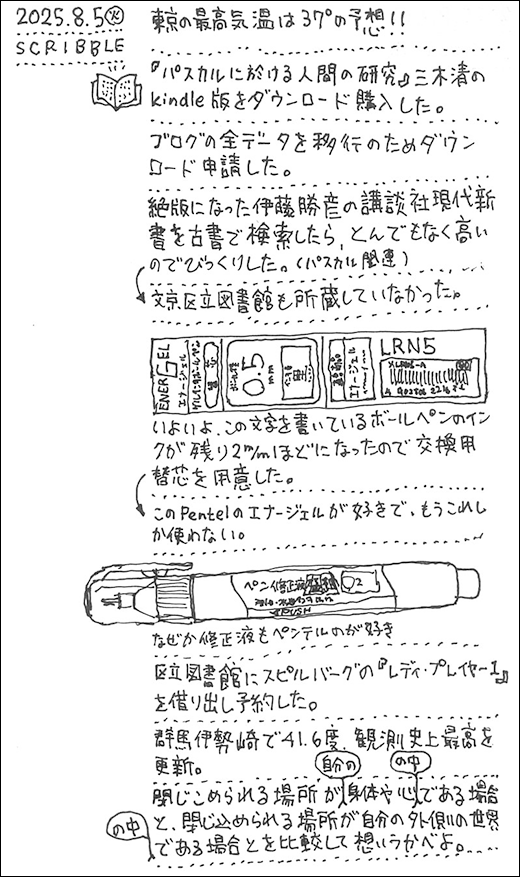 2025.8.5㊋
SCRIBBLE
東京の最高気温は37°の予想!!
『パスカルに於ける人間の研究』三木清の
kindle版をダウンロード購入した。
ブログの全データを移行のためダウン
ロード申請した。
絶版になった伊藤勝彦の講談社現代新
書を古書で検索したら、とんでもなく高い
のでびっくりした。(パスカル関連)
文京区立図書館も所蔵していなかった。
ENERGEL
エナージェル
0.5
mm
黒
エナージェル
LRN5
XLRN5-A
いよいよ、この文字を書いているボールペンのイン
クが残り2m/mほどになったので交換用
替芯を用意した。
このPentelのエナージェルが好きで、もうこれし
か使わない。
ペン修正液
PUSH
なぜか修正液もペンテルのが好き
区立図書館にスピルバーグの『レディ・プレイヤー1』
を借り出し予約した。
群馬伊勢崎で41.6度、観測史上最高を
更新。
自分の
の中
閉じこめられる場所が身体や心である場合
と、閉じ込められる場所が自分の外側の世界
の中
である場合とを比較して想いうかべよ。